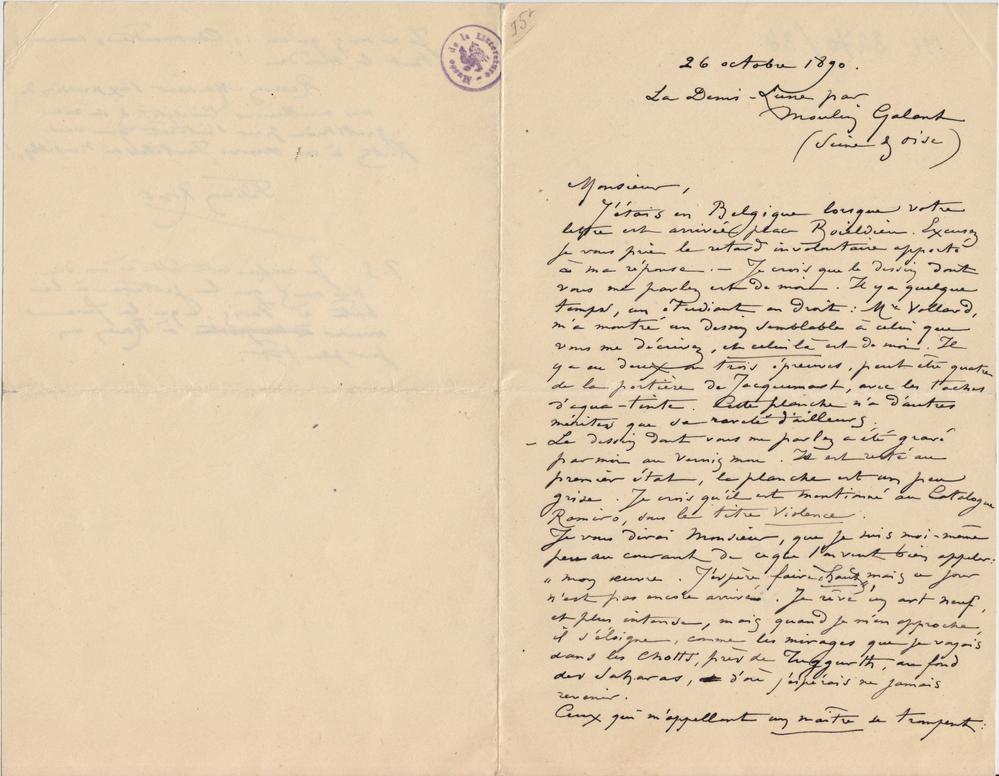 Musée de la Littérature
15+
26 octobre 1890.
La Demi-Lune par
Moulin Galant
(Seine & Oise)
Monsieur,
J'étais en Belgique lorsque votre
lettre est arrivée place Boieldieu. Excusez
je vous prie le retard involontaire apporté
à ma réponse. – Je crois que le dessin dont
vous me parlez est de moi. Il y a quelque
temps, un étudiant en Droit : Mr Vollard,
m'a montré un dessin semblable à celui que
vous me décrivez, et celui là est de moi. Il
y a eu deux ou trois épreuves, peut être quatre
de la portière de Jacquemart, avec les taches
d'aqua-tinte. Cette planche n'a d'autres
mérites que sa rareté d'ailleurs.
– Le dessin dont vous me parlez a été gravé
par moi au vernis mou. Il est resté au
premier état, la planche est un peu
grise. Je crois qu'il est mentionné au Catalogue
Ramiro, sous le titre Violence.
Je vous dirai Monsieur, que je suis moi-même
peu au courant de ce que l'on veut bien appeler :
"mon œuvre. J'espère faire haut", mais ce jour
n'est pas encore arrivé. Je rêve un art neuf,
et plus intense, mais quand je m'en approche,
il s'éloigne, comme les mirages que je voyais
dans les Chotts, près de Tuggurth, au fond
des Saharas, d'où j'espérais ne jamais
revenir.
Ceux qui m'appellent un maître se trompent :